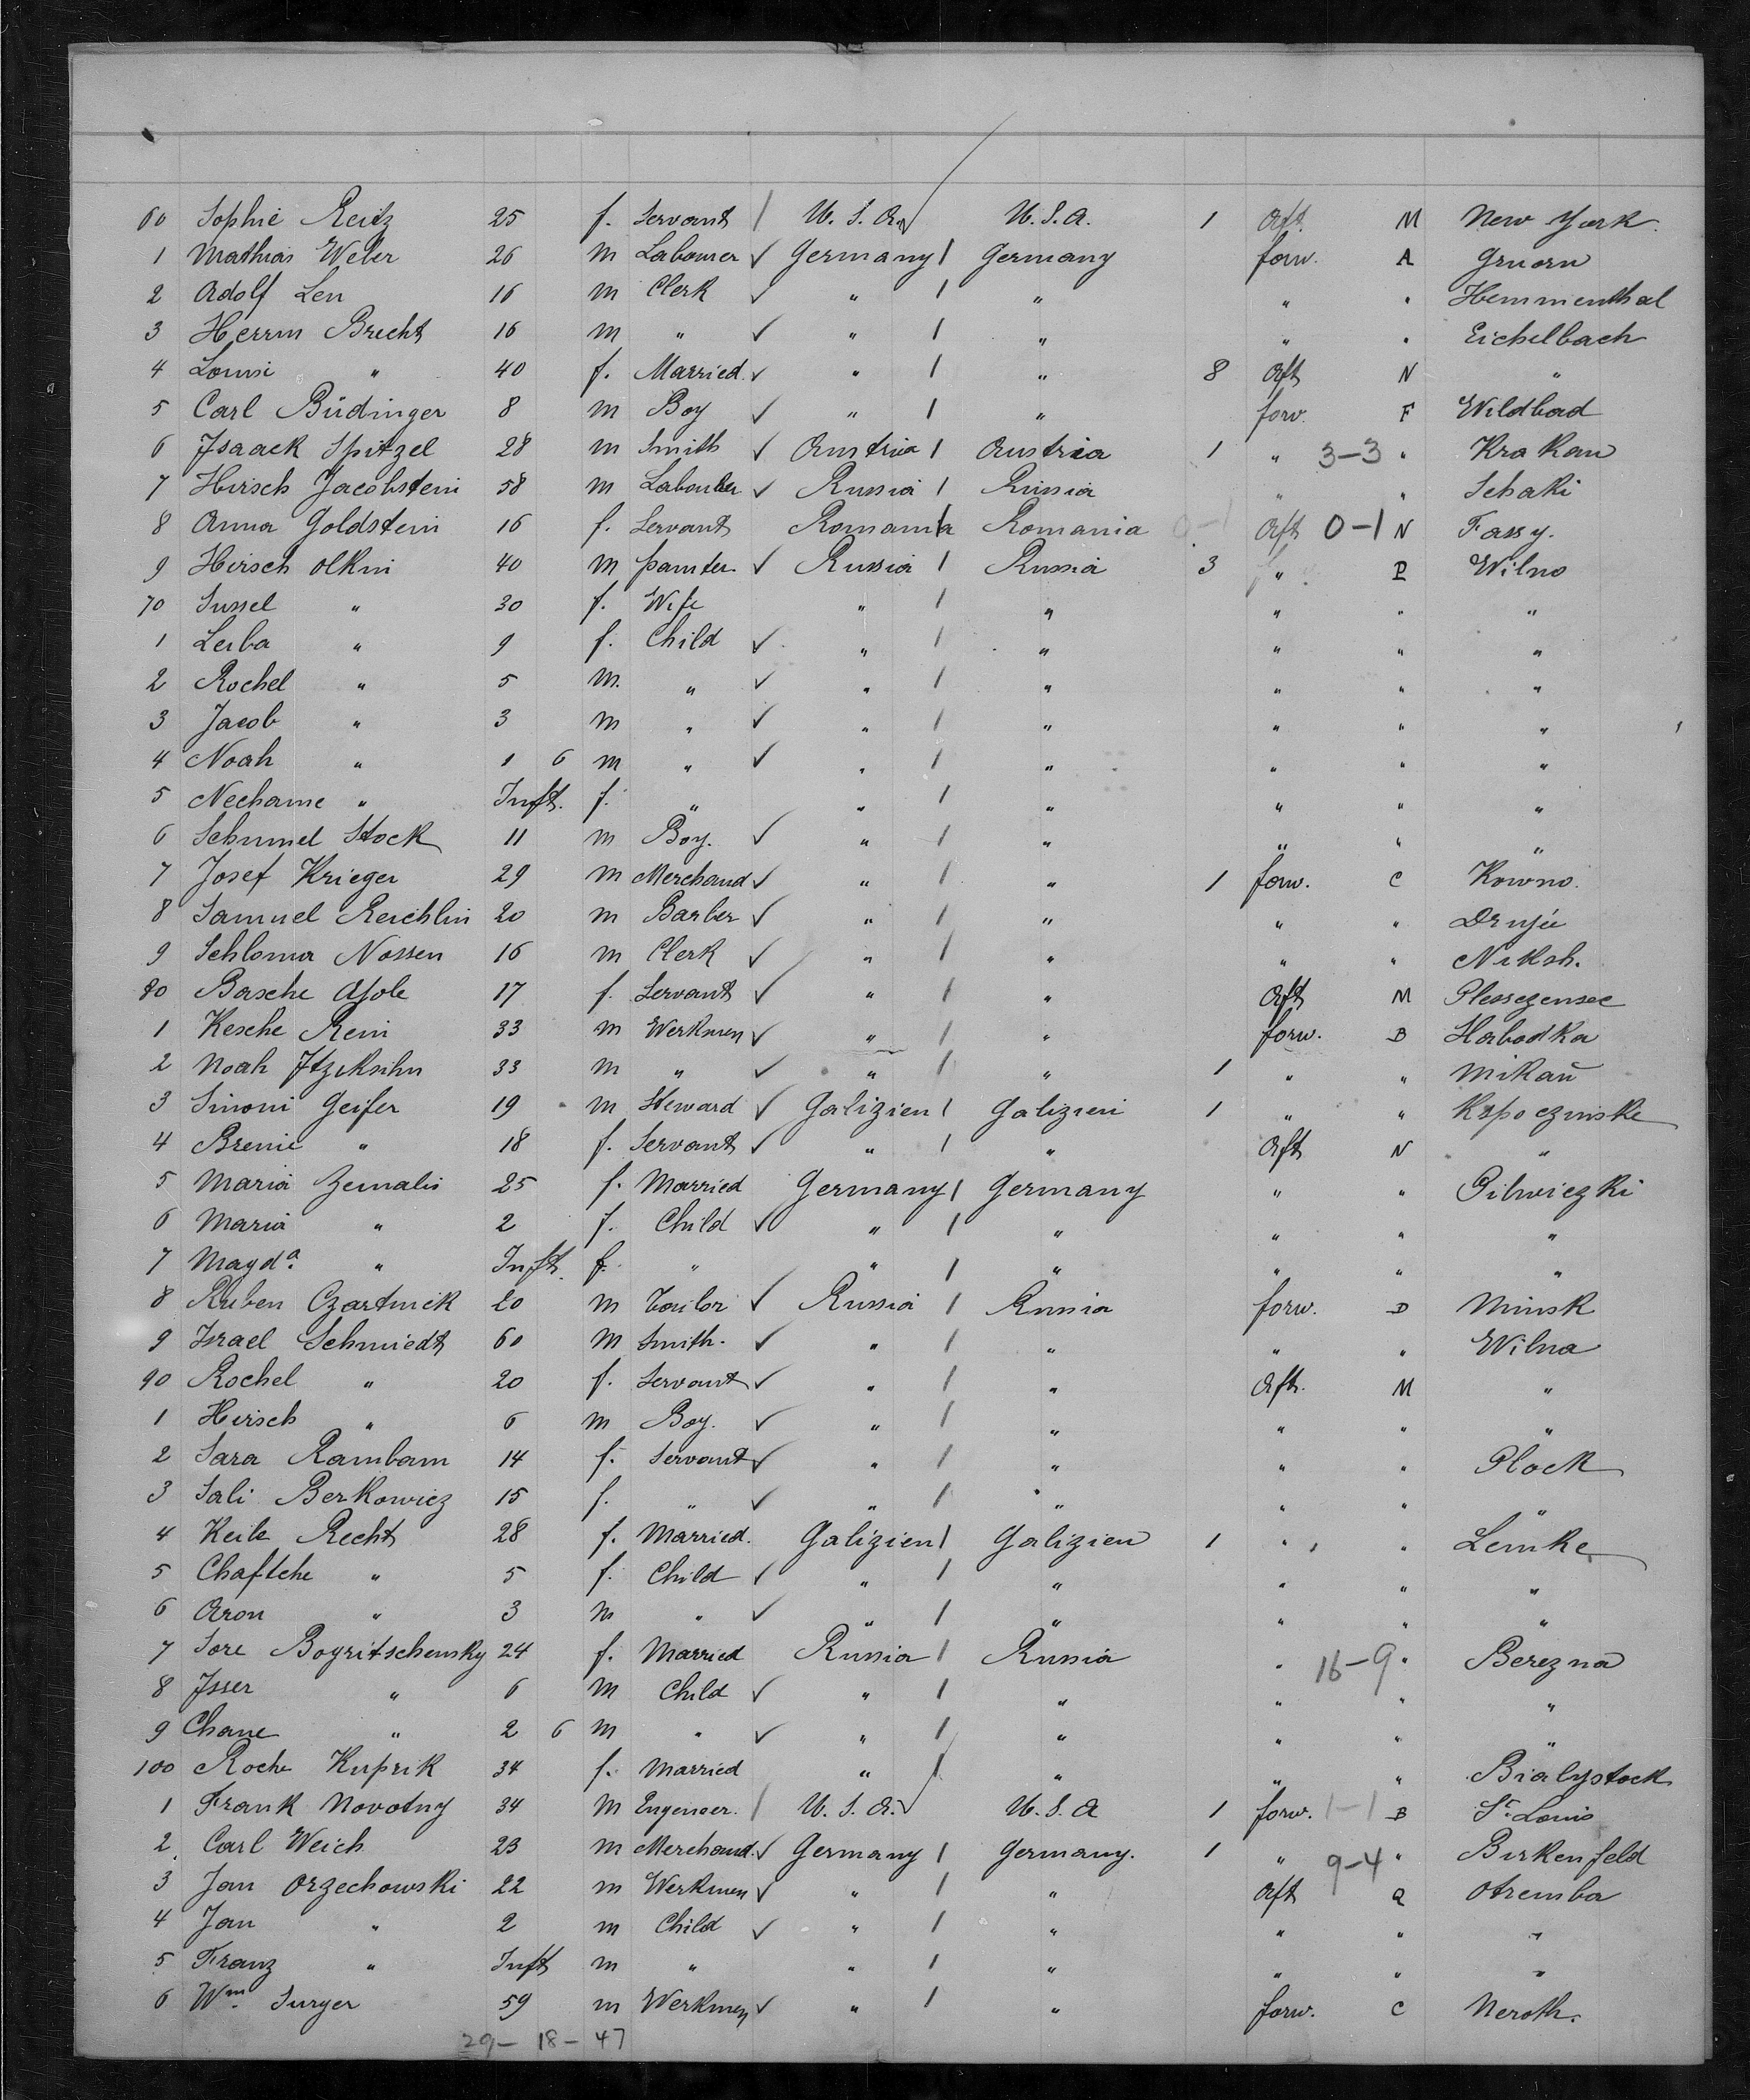 60 Sophie Reitz 25 f. Servant / U. S. A. U. S. A. 1 Aft. M New York.
1 Mathias Weber 26 m Labourer ✓ Germany / Germany forw. A Gruorn
2 Adolf Leu 16 m Clerk ✓ " / " " " Hemmenthal
3 Herrm Brecht 16 m " ✓ " / " " " Eichelbach
4 Louise " 40 f. Married ✓ " / " 8 Aft N "
5 Carl Büdinger 8 m Boy ✓ " / " forw. F Wildbad
6 Isaack Spitzel 28 m Smith ✓ Austria / Austria 1 " 3-3 " Krakau
7 Hirsch Jacobstein 58 m Labourer ✓ Russia / Russia " " Schaki
8 Anna Goldstein 16 f. Servant Romania / Romania 0-1 Aft 0-1 N Fassy.
9 Hirsch Olkin 40 m painter ✓ Russia / Russia 3 " P Wilno
70 Sussel " 30 f. Wife " / " " " "
1 Leiba " 9 f. Child ✓ " / " " " "
2 Rochel " 5 m. " ✓ " / " " " "
3 Jacob " 3 m " ✓ " / " " " "
4 Noah " 1 6 m " ✓ " / " " " "
5 Nechame " Inft. f. " " / " " " "
6 Schumel Stock 11 m Boy. ✓ " / " " " "
7 Josef Krieger 29 m Merchand ✓ " / " 1 forw. C Kowno.
8 Samuel Reichlin 20 m Barber ✓ " / " " " Drujie
9 Schloma Nossen 16 m Clerk ✓ " / " " " Niksh.
80 Basche 17 f. Servant ✓ " / " Aft M Plessezensee
1 Kesche Rein 33 m Werkmen ✓ " / " forw. B Slabodka
2 Noah Itziksihn 33 m " ✓ " / " 1 " " Mikaŭ
3 Simoni Geifer 19 m Steward ✓ Galizien / Galizien 1 " " Kopoczinske
4 Brenie " 18 f. Servant ✓ " / " Aft N "
5 Maria Zemalis 25 f. Married Germany / Germany " " Pilwiczki
6 Maria " 2 f. Child ✓ " / " " " "
7 Magda. " Inft. f. " " / " " " "
8 Ruben Czartnick 20 m Tailor ✓ Russia / Russia forw. D Minsk
9 Israel Schmiedt 60 m Smith. ✓ " / " " " Wilna
90 Rochel " 20 f. Servant ✓ " / " Aft. M "
1 Hirsch " 6 m Boy. ✓ " / " " " "
2 Sara Rambam 14 f. Servant ✓ " / " " " Plock
3 Sali Berkowicz 15 f. " ✓ " / " " " "
4 Keile Recht 28 f. Married. Galizien / Galizien 1 " " Lemke
5 Chaftche " 5 f. Child ✓ " / " " " "
6 Aron " 3 m " ✓ " / " " " "
7 Sore Bogritschewsky 24 f. Married Russia / Russia " 16-9 " Berezna
8 Isser " 6 m Child ✓ " / " " " "
9 Chane " 2 6 m " ✓ " / " " " "
100 Roche Kuprik 34 f. Married " / " " " Bialystock
1 Frank Novotny 34 m Engeneer. / U. S. A. U. S. A 1 forw. 1-1 B St. Louis
2 Carl Weich 23 m Merchand. ✓ Germany / Germany. 1 " 9-4 " Birkenfeld
3 Jan Orzechowski 22 m Werkmen ✓ " / " Aft Q Otremba
4 Jan " 2 m Child ✓ " / " " " "
5 Franz " Inft m " " / " " " "
6 Wm. Surger 59 m Werkmen ✓ " / " forw. C Neroth.
29- 18- 47